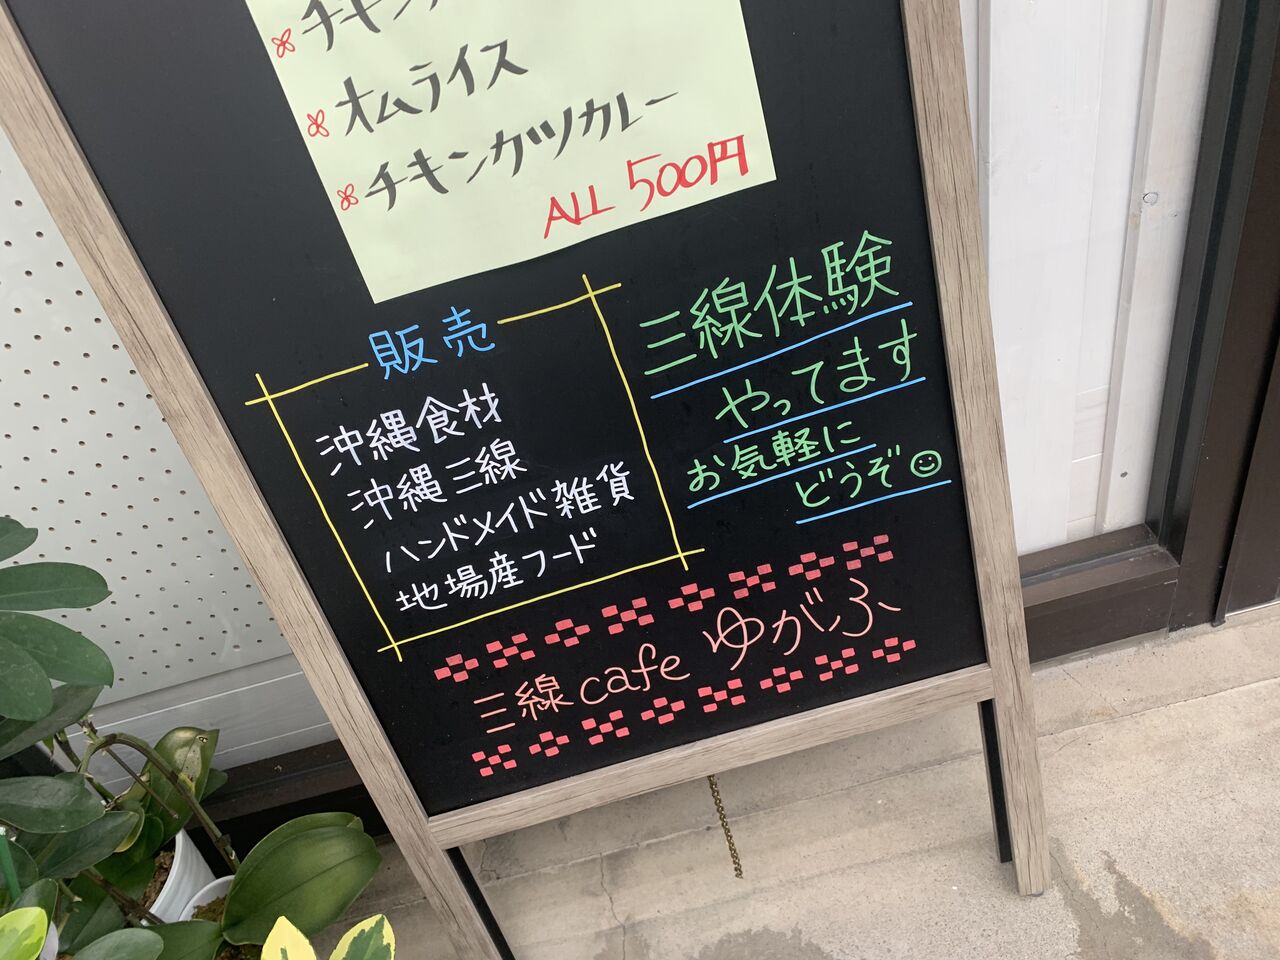 オムライス
チキンカツカレー
ALL 500円
販売
沖縄食材
沖縄三線
ハンドメイド雑貨
地場産フード
三線体験
やってます
お気軽に
どうぞ
三線cafe ゆがふ